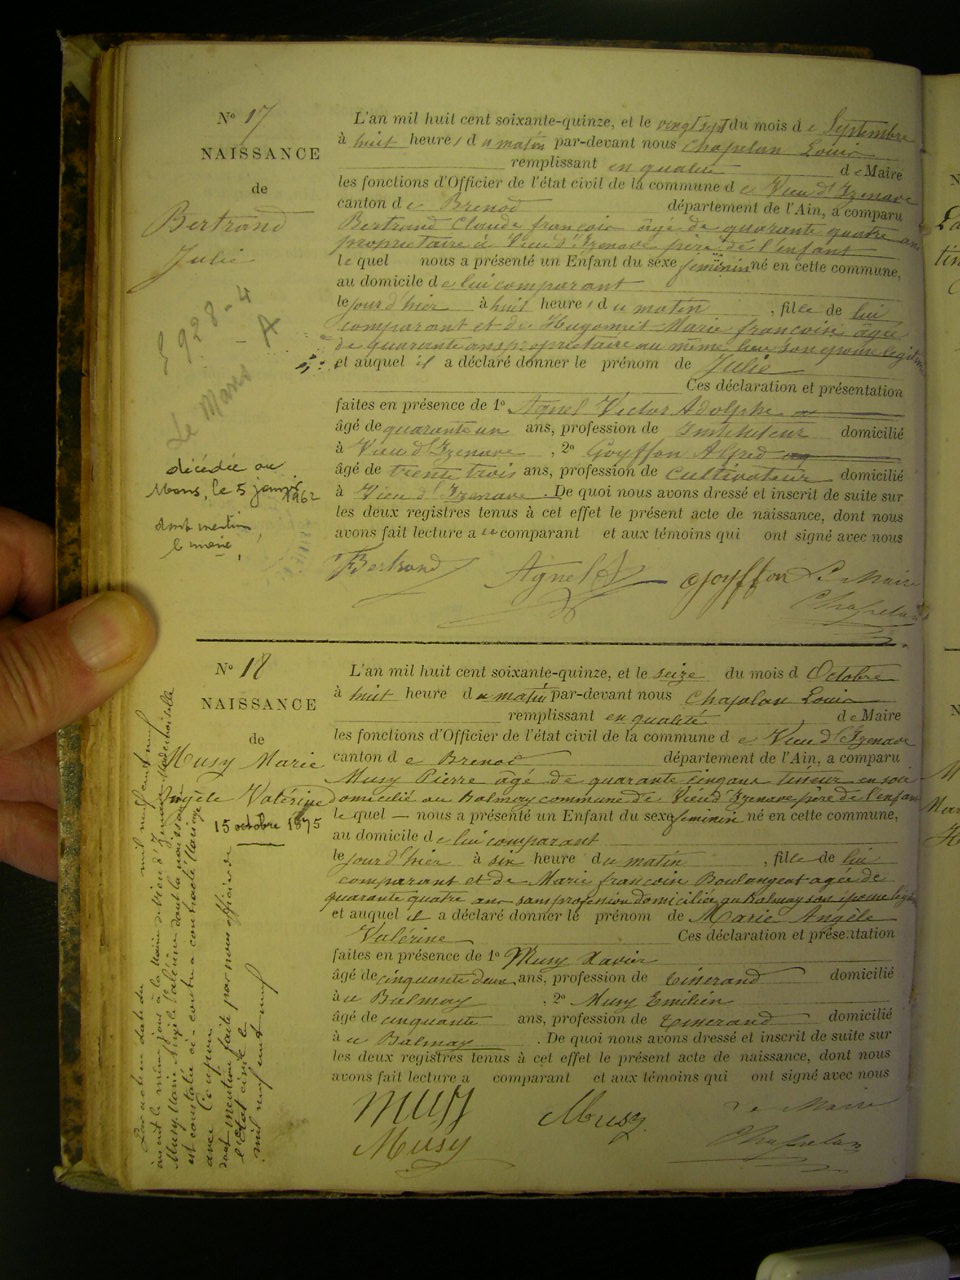 N° 17
NAISSANCE
de
Bertrand
Julie
5928-4
A
Le Mans
décédée au
Mans, le 5 janvier 1962
dont mention,
le maire,
L'an mil huit cent soixante-quinze, et le vingt sept du mois de Septembre
à huit heures du matin par-devant nous Chapelan Louis
remplissant en qualité de Maire
les fonctions d'Officier de l'état civil de la commune de Vieu d'Izenave
canton de Brenod département de l'Ain, a comparu
Bertrand Claude françois âgé de quarante quatre ans
propriétaire à Vieu d'Izenave père de l'enfant
lequel nous a présenté un Enfant du sexe féminin né en cette commune,
au domicile de lui comparant
le jour d'hier à huit heures du matin, fille de lui
comparant et de Hugonnet Marie françoise âgée
de quarante ans propriétaire au même lieu son épouse légitime
et auquel il a déclaré donner le prénom de Julie
Ces déclaration et présentation
faites en présence de 1° Agnel Victor Adolphe
âgé de quarante un ans, profession de Instituteur domicilié
à Vieu d'Izenave, 2° Goyffon Alfred
âgé de trente trois ans, profession de Cultivateur domicilié
à Vieu d'Izenave. De quoi nous avons dressé et inscrit de suite sur
les deux registres tenus à cet effet le présent acte de naissance, dont nous
avons fait lecture au comparant et aux témoins qui ont signé avec nous
Bertrand Agnel Goyffon Le Maire
Chapelan
N° 18
NAISSANCE
de
Musy Marie
Angèle Valérine
15 octobre 1875
L'an mil huit cent soixante-quinze, et le seize du mois d Octobre
à huit heure du matin par-devant nous Chapelan Louis
remplissant en qualité de Maire
les fonctions d'Officier de l'état civil de la commune de Vieu d'Izenave
canton de Brenod département de l'Ain, a comparu
Musy Pierre âgé de quarante cinq ans tisseur en soie
domicilié au Balmay commune de Vieu d'Izenave père de l'enfant
lequel nous a présenté un Enfant du sexe féminin né en cette commune,
au domicile de lui comparant
le jour d'hier à six heure du matin, fille de lui
comparant et de Marie françoise Boulongeat agée de
quarante quatre ans sans profession domiciliée au Balmay son épouse légitime
et auquel il a déclaré donner le prénom de Marie Angèle
Valérine Ces déclaration et présentation
faites en présence de 1° Musy Xavier
âgé de cinquante deux ans, profession de tisserand domicilié
à u Balmay, 2° Musy Emilien
âgé de cinquante ans, profession de tisserand domicilié
à u Balmay. De quoi nous avons dressé et inscrit de suite sur
les deux registres tenus à cet effet le présent acte de naissance, dont nous
avons fait lecture a comparant et aux témoins qui ont signé avec nous
Musy Musy Le Maire
Musy Chapelan
Par acte en date du mil neuf cent neuf
Musy Marie Angèle Valérine dont la naissance
est constatée ci-contre a contracté mariage
avec
dont mention faite par nous officier de
l'état civil le
mil neuf cent neuf